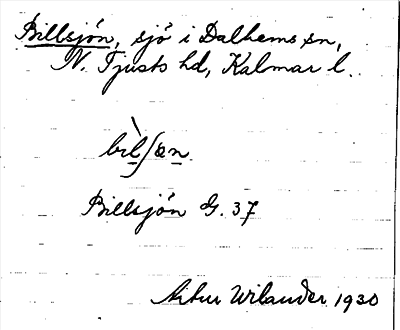 Billsjön, sjö i Dalhems sn,
N. Tjusts hd, Kalmar l.
bìlʃön
Billsjön G. 37
Artur Wilander 1930